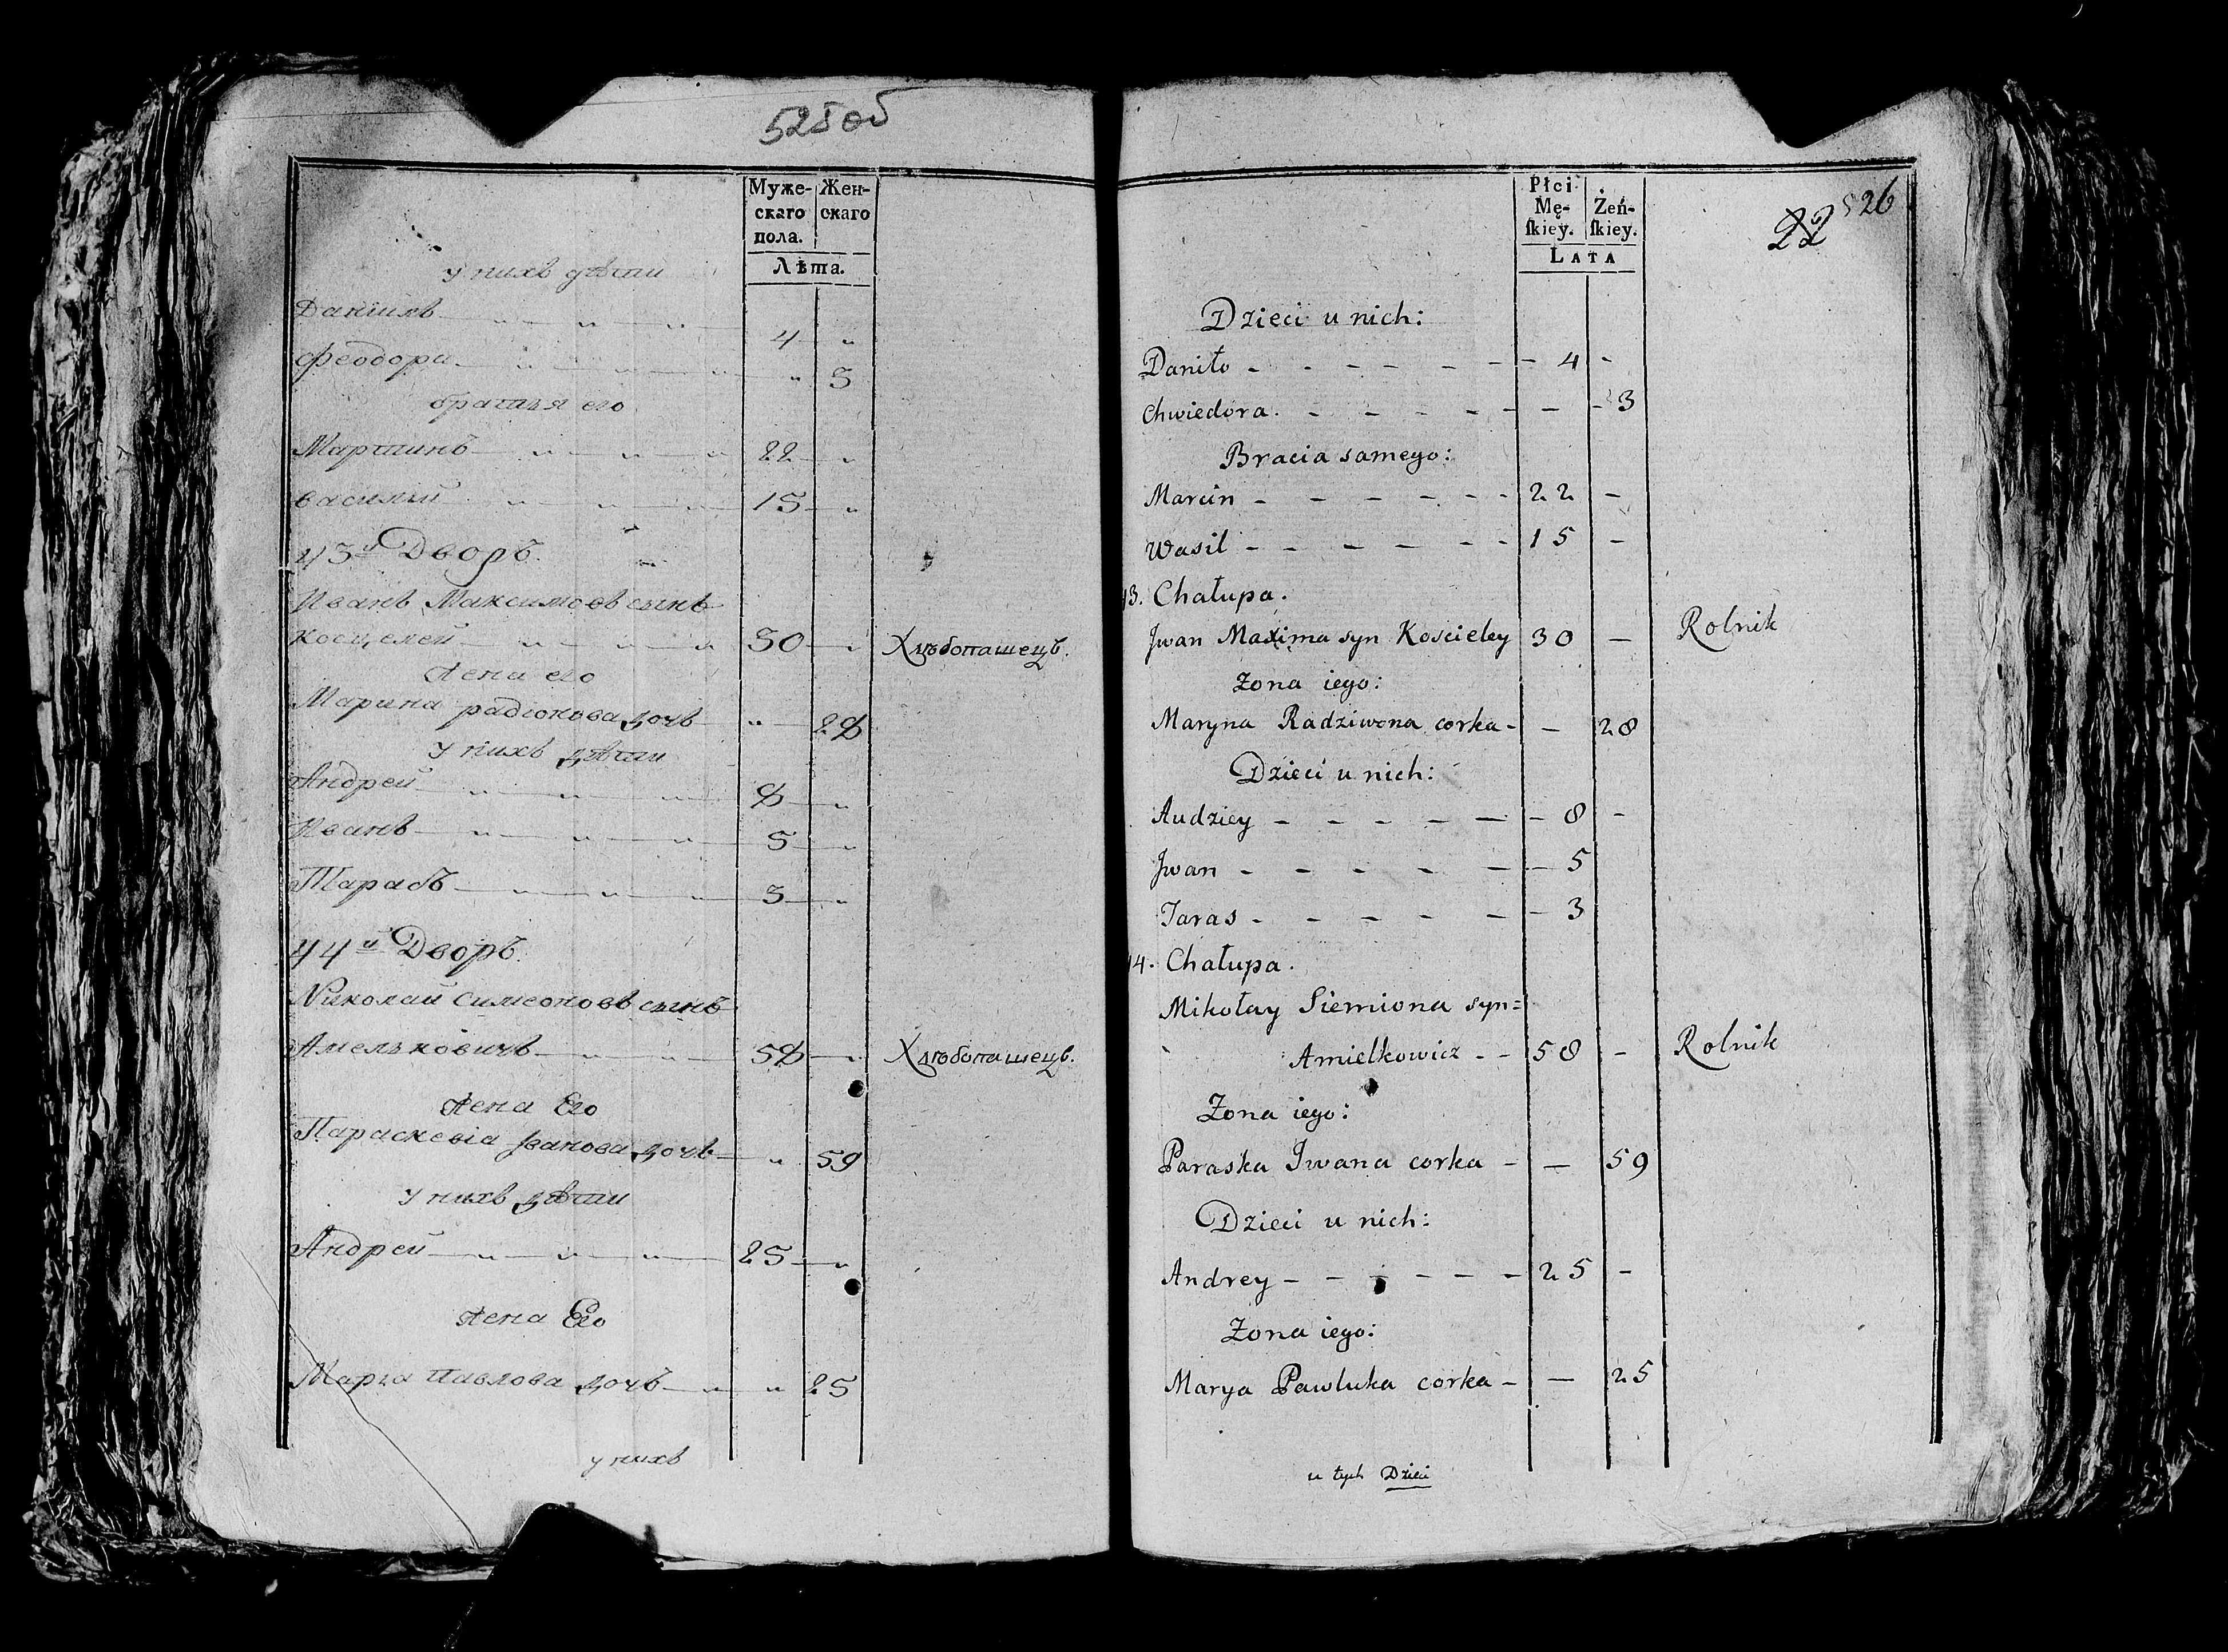 525 об
Муже-
скаго
пола.
Жен-
скаго
Лѣта.
у нихъ дѣти
Данiилъ 4 "
Феодора " 3
братья его
Мартинъ 22 "
василий 15 "
43й Дворъ.
Иванъ Максимовъ сынъ
Косцелей 30 " Хлѣбопашецъ.
жена его
Марина радiонова дочь " 28
у нихъ дѣти
Андрей 8 "
Иванъ 5 "
Тарасъ 3 "
44й Дворъ.
Николай симеоновъ сынъ
Амельковичъ 58 " Хлѣбопашецъ.
жена Его
Параскевiа Іванова дочь " 59
у нихъ дѣти
Андрей 25 "
жена Его
Марiа Павлова дочь " 25
у нихъ
Płci
Mę-
ſkiey.
Żeń-
ſkiey.
LATA
22 526
Dzieci u nich:
Daniło - - - - - - 4 -
Chwiedora. - - - - - - - 3
Bracia samego:
Marcin - - - - - - 22 -
Wasil - - - - - - 15 -
3. Chałupa.
Jwan Maxima syn Kościeley 30 - Rolnik
Żona iego:
Maryna Radziwona corka - - 28
Dzieci u nich:
Audziey - - - - - - 8 -
Jwan - - - - - - 5
Taras - - - - - - 3
14. Chałupa.
Mikołay Siemiona syn=
Amielkowicz - - 58 - Rolnik
Żona iego:
Paraska Jwana corka - - 59
Dzieci u nich:
Andrey - - - - - - 25 -
Żona iego:
Marya Pawluka corka - - 25
u tych Dzieci